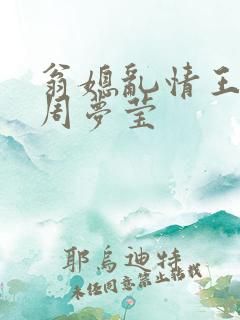 翁媳亂情王
周夢瑩
耶烏迪特
未任同意禁止轉載